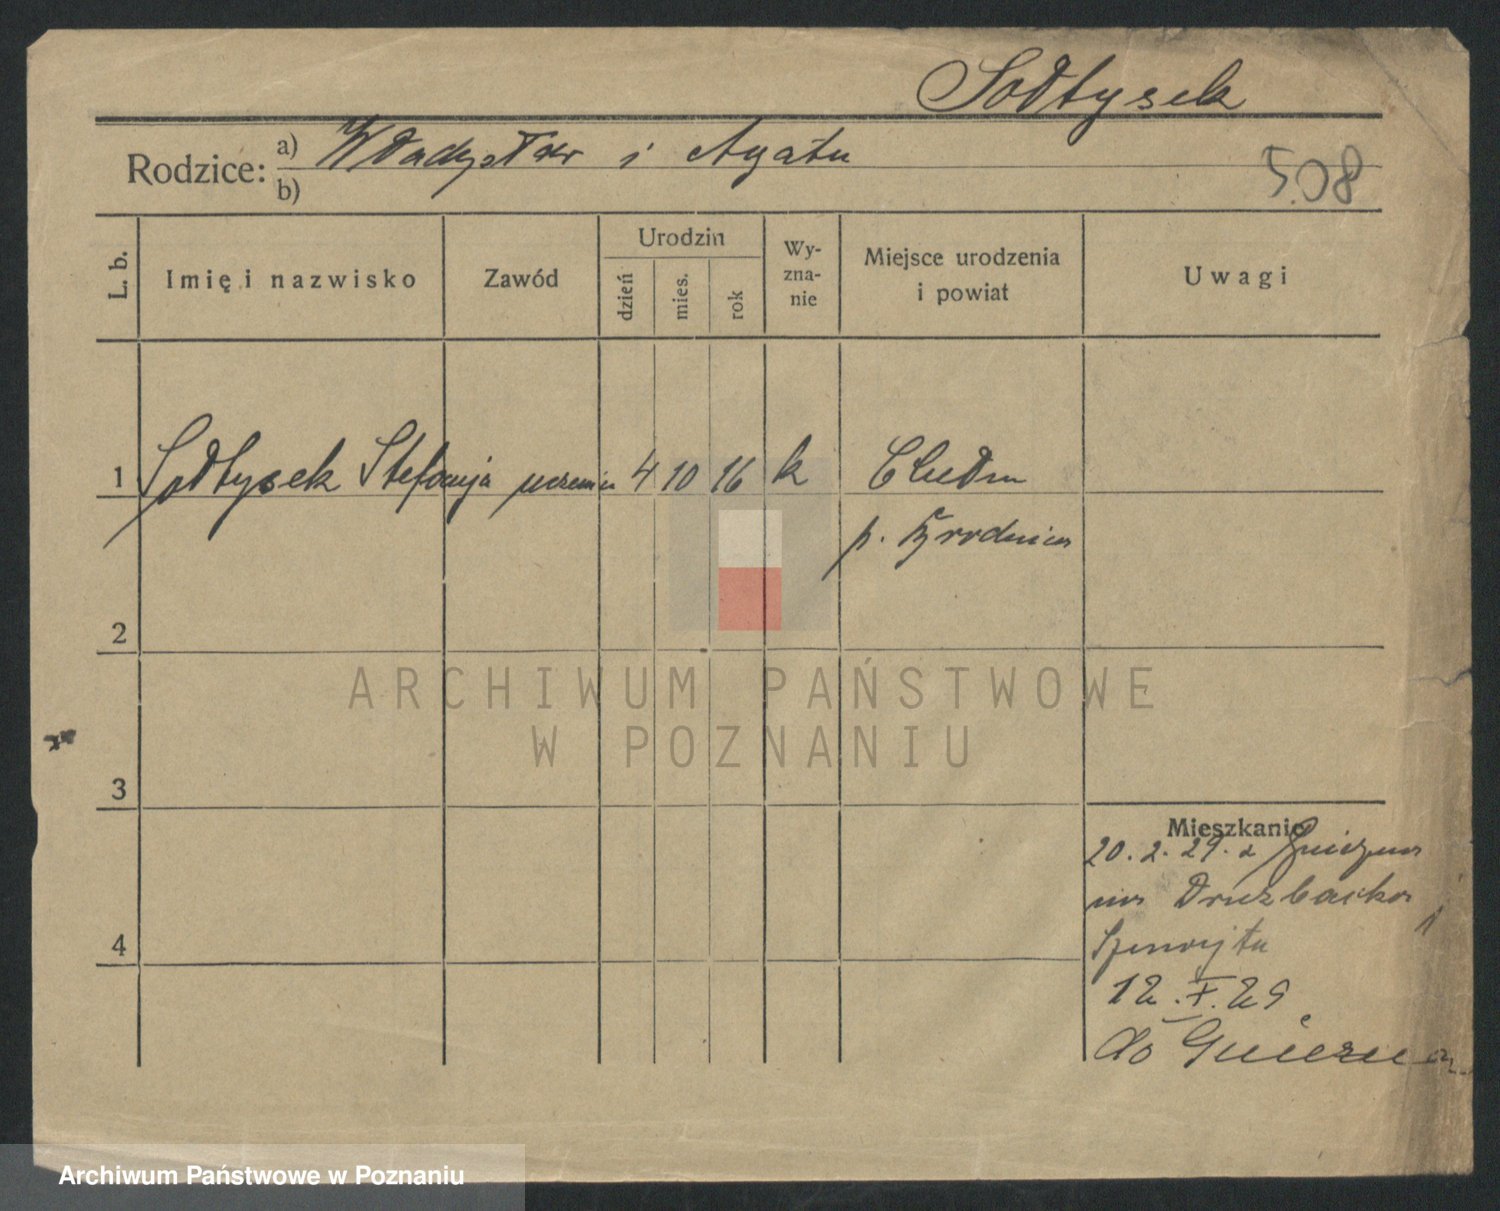 Sołtysek
Rodzice: a) Władysław i Agata
b)
508
L. b.
Imię i nazwisko
Zawód
Urodzin
dzień
mies.
rok
Wy-
zna-
nie
Miejsce urodzenia
i powiat
Uwagi
1 Sołtysek Stefanja uczenica 4 10 16 k
p. Brodnica
2
3
4
Mieszkanie
20. 2. 29. z Gniezna
na Drużbacka
12. X. 29
do Gniezna
ARCHIWUM PAŃSTWOWE
W POZNANIU
Archiwum Państwowe w Poznaniu